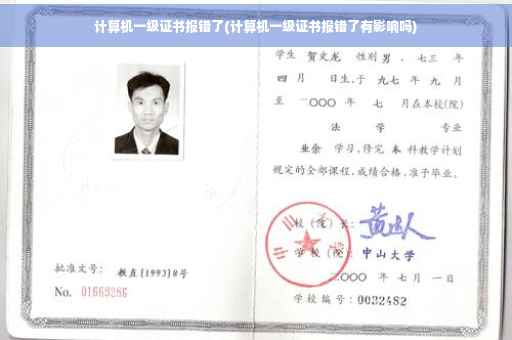 计算机一级证书报错了(计算机一级证书报错了有影响吗)
学生 贺文龙 性别 男，七三 年
四 月 日生，于 九七 年 九 月
至 二〇〇〇 年 七 月在本校(院)
法 学 专业
业余 学习，修完 本 科教学计划
规定的全部课程，成绩合格，准予毕业。
校（院）长：
学 校（院）：中山大学
二〇〇〇 年 七 月 一 日
学校编号：0032482
批准文号： 教直[1993]8号
No. 01669286